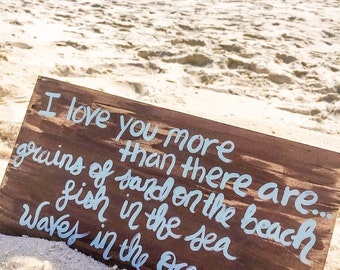 I love you more
than there are...
grains of sand on the beach
fish in the sea
waves in the